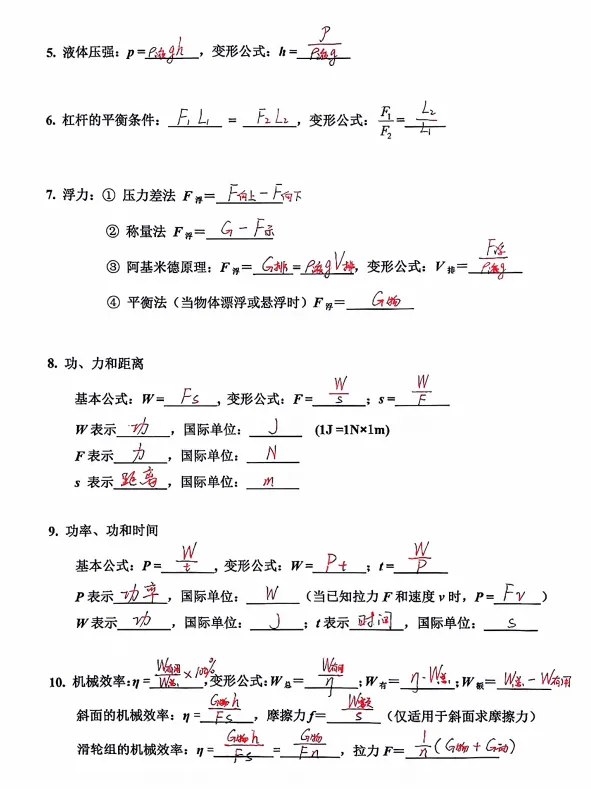 5. 液体压强：p = ρ液gh ，变形公式：h = P/ρ液g
6. 杠杆的平衡条件： F₁L₁ = F₂L₂ ，变形公式：F₁/F₂ = L₂/L₁
7. 浮力：① 压力差法 F浮＝ F向上－F向下
② 称量法 F浮＝ G－F示
③ 阿基米德原理：F浮＝ G排 = ρ液gV排，变形公式：V排＝ F浮/ρ液g
④ 平衡法（当物体漂浮或悬浮时）F浮＝ G物
8. 功、力和距离
基本公式：W = Fs ，变形公式：F = W/s ；s = W/F
W 表示 功 ，国际单位： J (1J =1N×1m)
F 表示 力 ，国际单位： N
s 表示 距离 ，国际单位： m
9. 功率、功和时间
基本公式：P = W/t ，变形公式：W = Pt ；t = W/P
P 表示 功率 ，国际单位： W （当已知拉力 F 和速度 v 时，P = Fv ）
W 表示 功 ，国际单位： J ；t 表示 时间 ，国际单位： s
10. 机械效率：η = W有用/W总 ×100% ，变形公式：W总＝ W有用/η ；W有＝ η·W总 ；W额＝ W总－W有用
斜面的机械效率：η = G物h/Fs ，摩擦力 f = W额/s （仅适用于斜面求摩擦力）
滑轮组的机械效率：η = G物h/Fs = G物/Fn ，拉力 F＝ 1/n(G物＋G动)